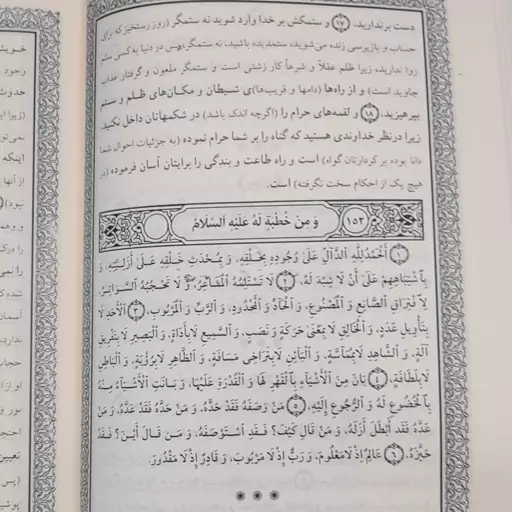 دست برندارید، (۱۷) و ستمکش بر خدا وارد شوید نه ستمگر (روز رستخیز که برای
حساب و بازپرسی زنده می‌شوید، ستمدیده باشید، نه ستمگر، پس در دنیا به کسی ستم
روا ندارید، زیرا ظلم عقلاً و شرعاً کار زشتی است و ستمگر ملعون و گرفتار عذاب
جاوید است) و از راه‌ها (دامها و فریب‌ها)ی شیطان و مکان‌های ظلم و ستم
بپرهیزید، (۱۸) و لقمه‌های حرام را (اگرچه اندک باشد) در شکمهاتان داخل نکنید،
زیرا در نظر خداوندی هستید که گناه را بر شما حرام نموده (به جزئیات احوال شما
دانا بوده بر کردارتان گواه) است و راه طاعت و بندگی را برایتان آسان فرموده (در
هیچ یک از احکام سخت نگرفته) است.
وَ مِنْ خُطْبَةٍ لَهُ عَلَيْهِ السَّلَامُ
۱۵۲
(۱) اَلْحَمْدُ لِلّٰهِ الدَّالِّ عَلىٰ وُجُودِهِ بِخَلْقِهِ، وَ بِمُحْدَثِ خَلْقِهِ عَلىٰ أَزَلِيَّتِهِ، وَ
بِاشْتِبَاهِهِمْ عَلىٰ أَنْ لَا شِبْهَ لَهُ، (۲) لَا تَسْتَلِمُهُ الْمَشَاعِرُ، وَ لَا تَحْجُبُهُ السَّوَاتِرُ،
لِافْتِرَاقِ الصَّانِعِ وَ الْمَصْنُوعِ، وَ الْحَادِّ وَ الْمَحْدُودِ، وَ الرَّبِّ وَ الْمَرْبُوبِ، (۳) الْأَحَدِ لَا
بِتَأْوِيلِ عَدَدٍ، وَ الْخَالِقِ لَا بِمَعْنىٰ حَرَكَةٍ وَ نَصَبٍ، وَ السَّمِيعِ لَا بِأَدَاةٍ، وَ الْبَصِيرِ لَا بِتَفْرِيقِ
آلَةٍ، وَ الشَّاهِدِ لَا بِمُمَاسَّةٍ، وَ الْبَائِنِ لَا بِتَرَاخِي مَسَافَةٍ، وَ الظَّاهِرِ لَا بِرُؤْيَةٍ، وَ الْبَاطِنِ
لَا بِلَطَافَةٍ، (۴) بَانَ مِنَ الْأَشْيَاءِ بِالْقَهْرِ لَهَا وَ الْقُدْرَةِ عَلَيْهَا، وَ بَانَتِ الْأَشْيَاءُ مِنْهُ
بِالْخُضُوعِ لَهُ وَ الرُّجُوعِ إِلَيْهِ، (۵) مَنْ وَصَفَهُ فَقَدْ حَدَّهُ، وَ مَنْ حَدَّهُ فَقَدْ عَدَّهُ، وَ مَنْ
عَدَّهُ فَقَدْ أَبْطَلَ أَزَلَهُ، وَ مَنْ قَالَ كَيْفَ؟ فَقَدِ اسْتَوْصَفَهُ، وَ مَنْ قَالَ أَيْنَ؟ فَقَدْ
حَيَّزَهُ، (۶) عَالِمٌ إِذْ لَا مَعْلُومَ، وَ رَبٌّ إِذْ لَا مَرْبُوبَ، وَ قَادِرٌ إِذْ لَا مَقْدُورَ.